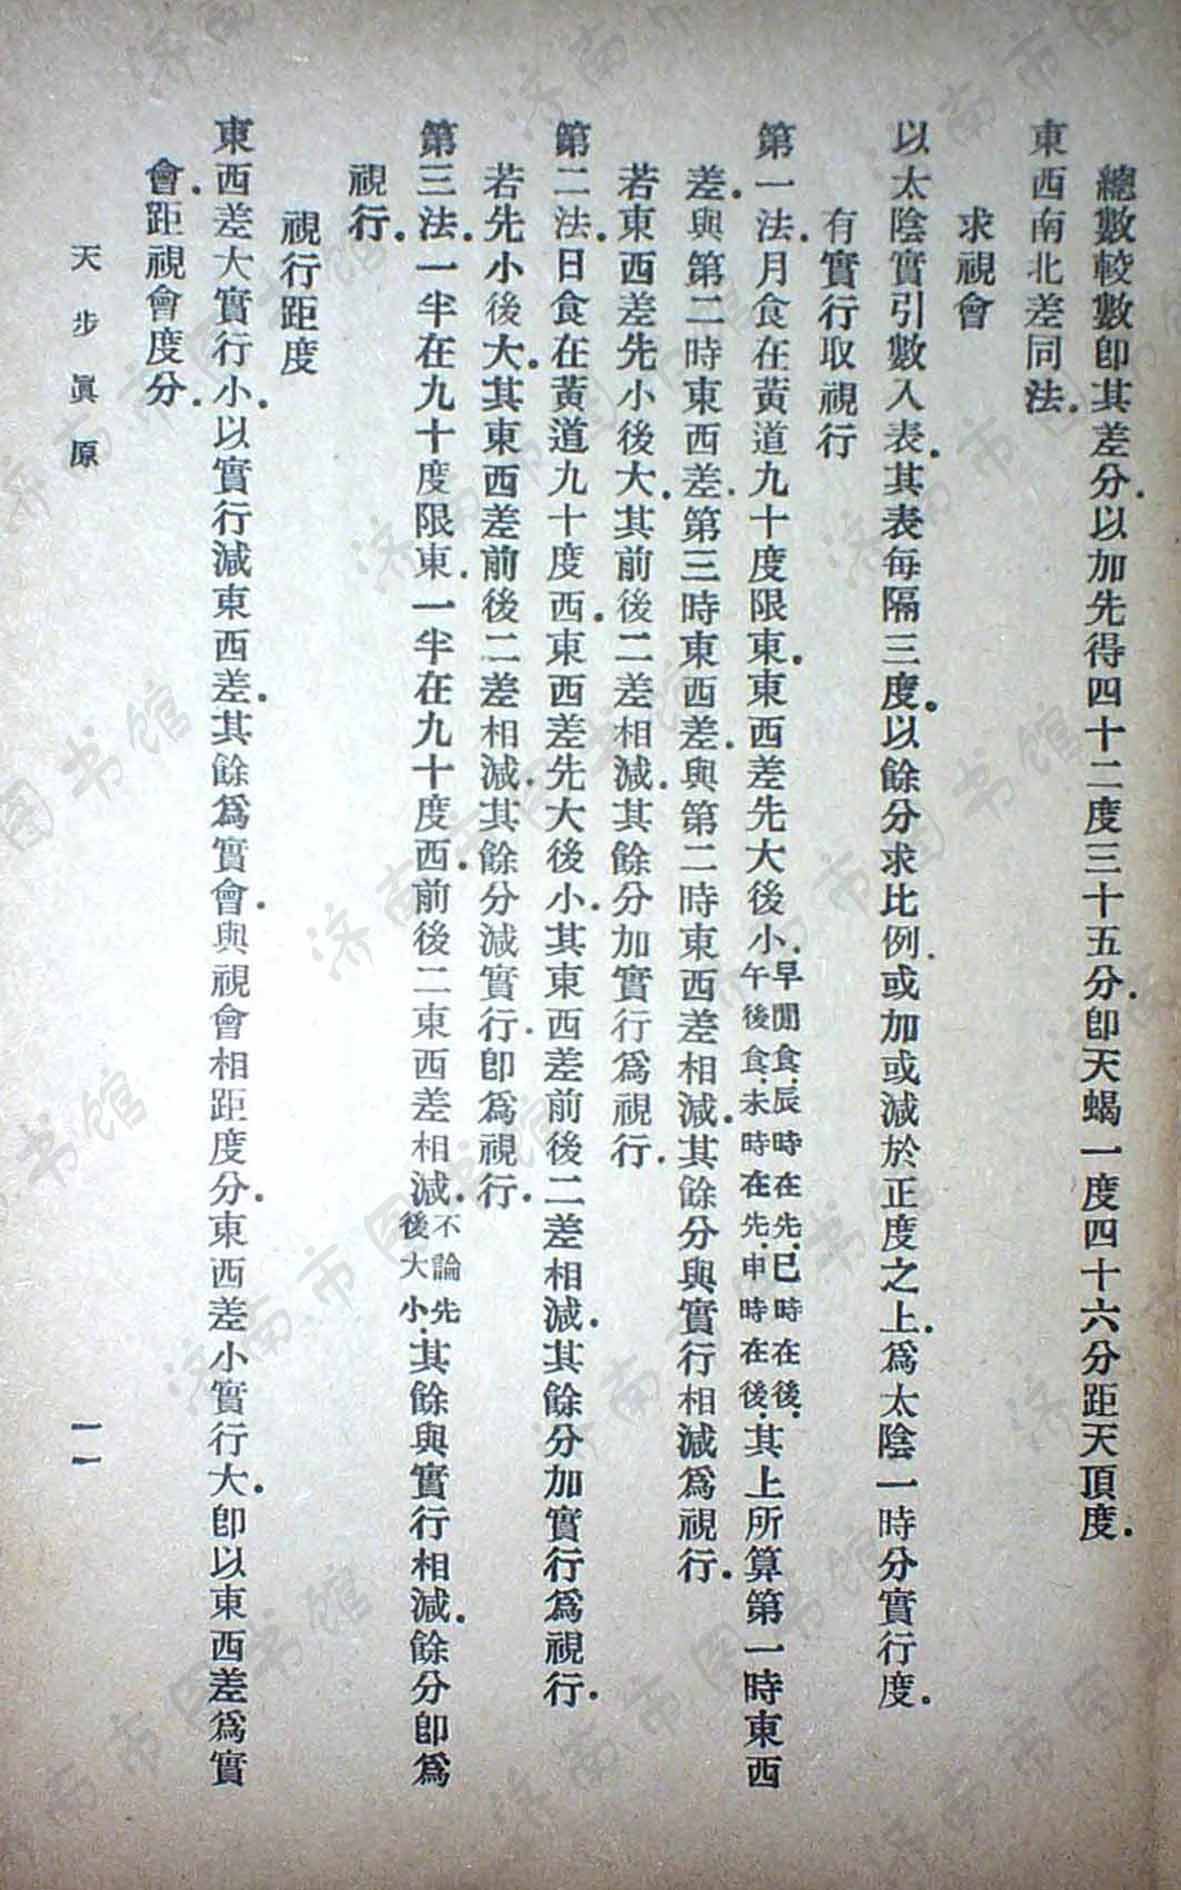 總數較數卽其差分.以加先得四十二度三十五分.卽天蝎一度四十六分距天頂度.
東西南北差同法.
求視會
以太陰實引數入表.其表每隔三度.以餘分求比例.或加或減於正度之上.爲太陰一時分實行度.
有實行取視行
第一法.月食在黃道九十度限東.東西差先大後小.早閒食.辰時在先.巳時在後.午後食.未時在先.申時在後.其上所算第一時東西
差.與第二時東西差.第三時東西差.與第二時東西差相減.其餘分與實行相減爲視行.
若東西差先小後大.其前後二差相減.其餘分加實行爲視行.
第二法.日食在黃道九十度西.東西差先大後小.其東西差前後二差相減.其餘分加實行爲視行.
若先小後大.其東西差前後二差相減.其餘分減實行.卽爲視行.
第三法.一半在九十度限東.一半在九十度西.前後二東西差相減.不論先後大小.其餘與實行相減.餘分卽爲
視行.
視行距度
東西差大實行小.以實行減東西差.其餘爲實會.與視會相距度分.東西差小實行大.卽以東西差爲實
會.距視會度分.
天步眞原
一一
济南市图书馆